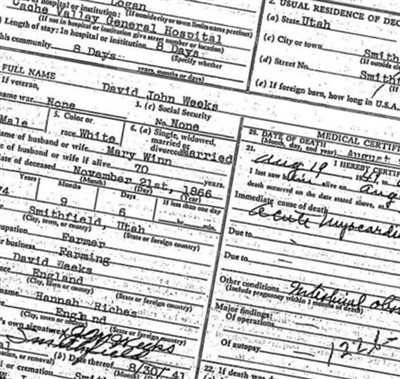 Logan
(c) Name of hospital or institution: (If outside city or town limits name precinct)
Cache Valley General Hospital
(If not in hospital or institution give street number or location)
Length of stay: In hospital or institution 8 Days
(Specify whether
this community 8 Days
years, months or days)
FULL NAME David John Weeks
If veteran,
name war. None
3. (c) Social Security
No. None
Male
5. Color or
race. White
6. (a) Single, widowed,
married or
divorced Married
name of husband or wife. Mary Winn
of husband or wife if alive 70
date of deceased November 21st, 1866
(Month) (Day) (Year)
74
Years
Months
9
Days
6
If less than one day
hr. min.
Smithfield, Utah
(City, town, or county) (State or foreign country)
occupation Farmer
or business Farming
David Weeks
England
(City, town or county) (State or foreign country)
Hannah Riches
England
(City, town, or county) (State or foreign country)
's own signature
Smithfield
(b) Date thereof 8/30/41
cremation, or removal) (Month) (Day) (Year)
or cremation Smith
2. USUAL RESIDENCE OF DEC
(a) State Utah
(c) City or town Smith
(If outside
(d) Street No. Smith
(If
(e) If foreign born, how long in U.S.A.
MEDICAL CERTIF
20. DATE OF DEATH
(Month, day, and year) August
21. I HEREBY CERTIF
Aug 19
I last saw alive on Aug
death occurred on the date stated above, at
Immediate cause of death
Acute myocardi
Due to
Due to
Other conditions Intestinal obs
(Include pregnancy within 3 months of death)
Major findings:
Of operations
Of autopsy
22. If death was